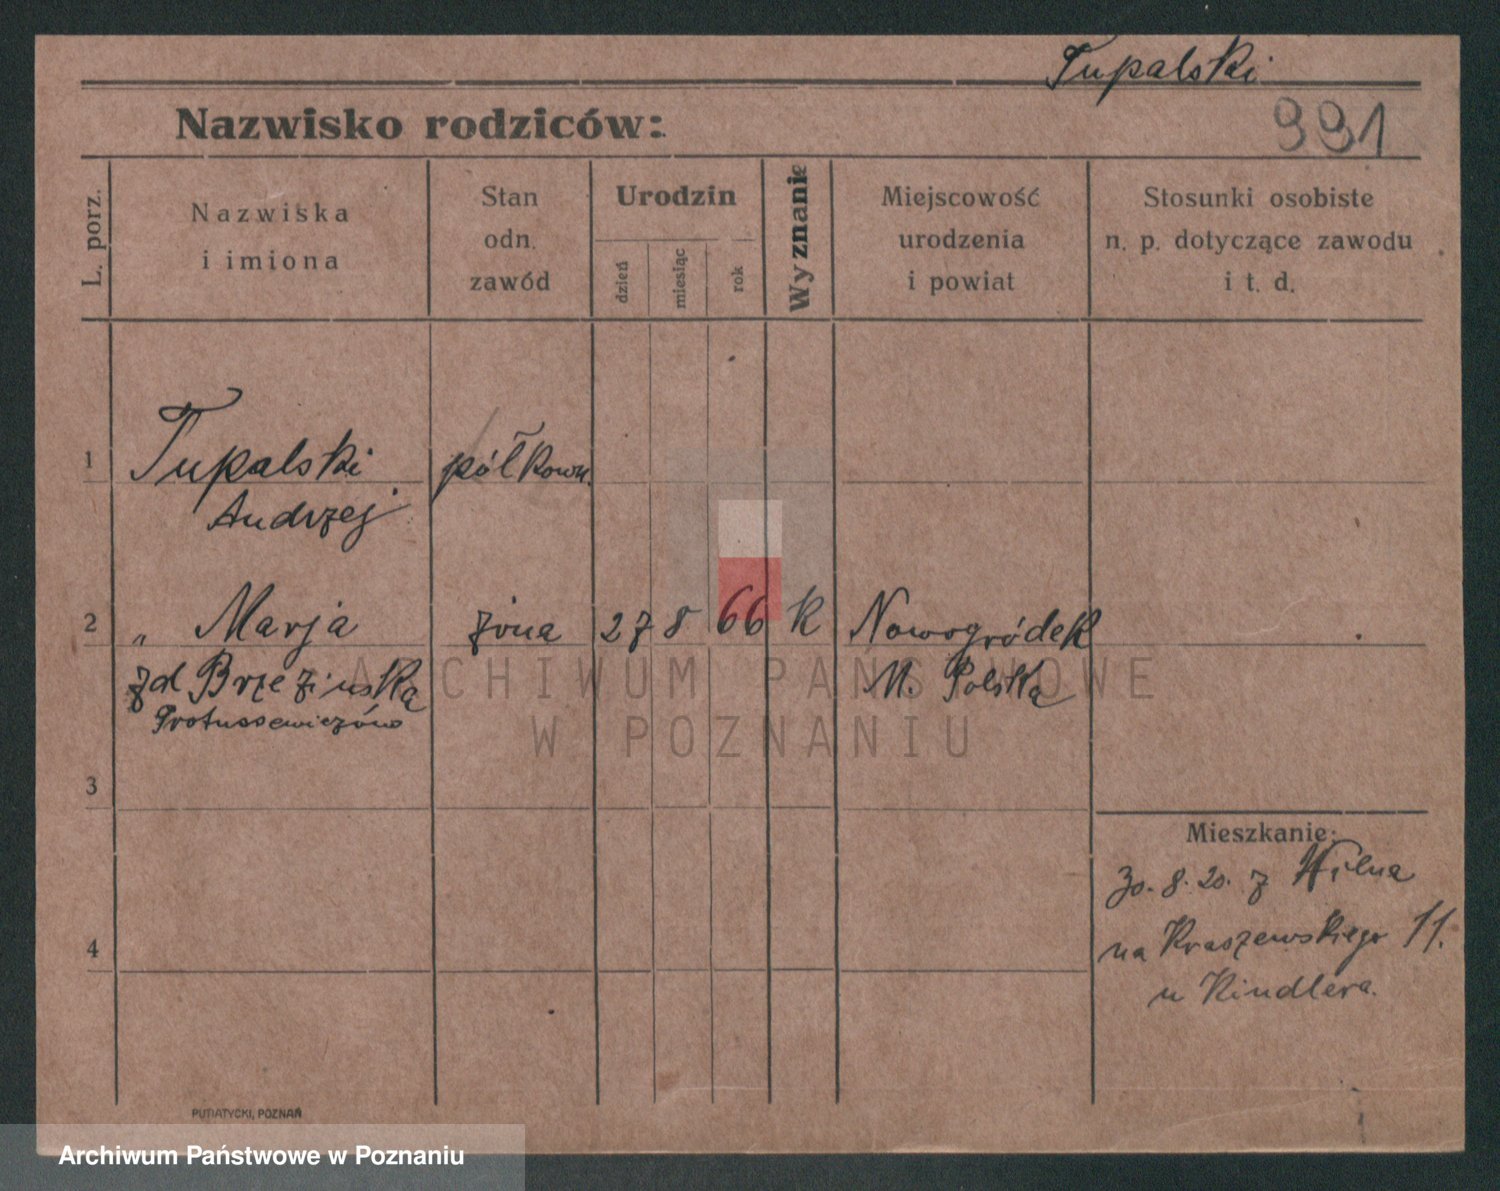 Tupalski
991
Nazwisko rodziców:
L. porz.
Nazwiska
i imiona
Stan
odn.
zawód
Urodzin
dzień
miesiąc
rok
Wyznanie
Miejscowość
urodzenia
i powiat
Stosunki osobiste
n. p. dotyczące zawodu
i t. d.
1 Tupalski półkown.
Andrzej
2 „ Marja żona 27 8 66 k Nowogródek
zd Brzezińska M. Polska
Protussewiczów
3
Mieszkanie:
30. 8. 20. z Wilna
na Kraszewskiego 11.
u Kindlera.
4
ARCHIWUM PAŃSTWOWE
W POZNANIU
PUTIATYCKI, POZNAŃ
Archiwum Państwowe w Poznaniu